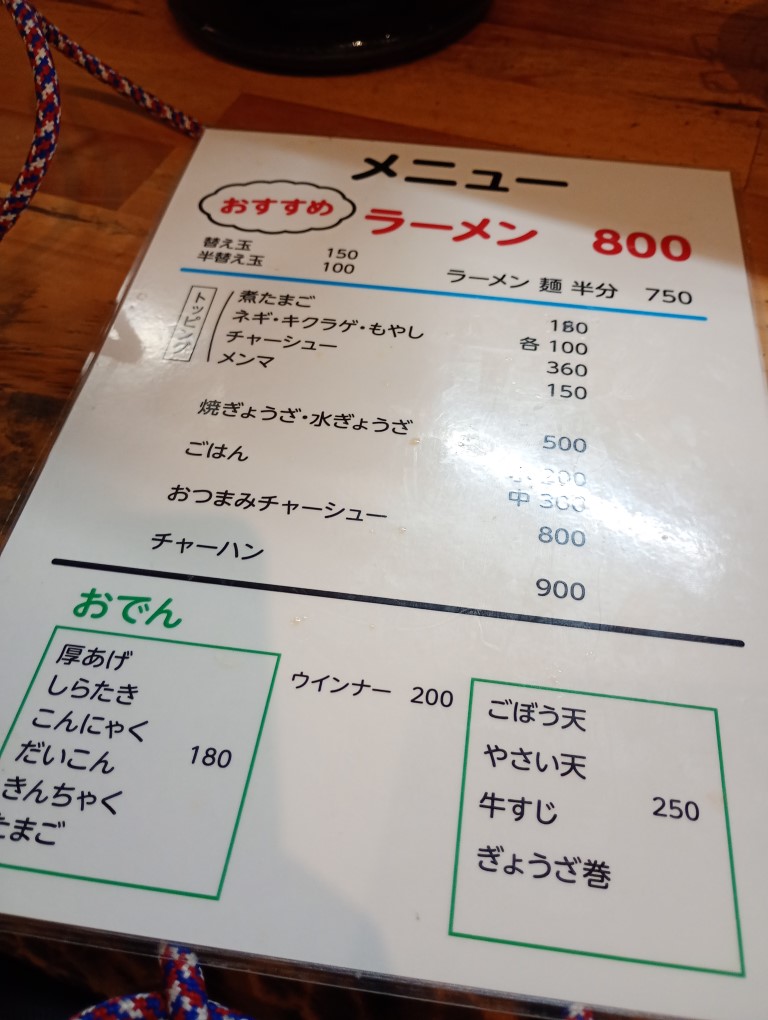 メニュー
おすすめ ラーメン 800
替え玉 150
半替え玉 100
ラーメン 麺 半分 750
トッピング
煮たまご 180
ネギ・キクラゲ・もやし 各 100
チャーシュー 360
メンマ 150
焼ぎょうざ・水ぎょうざ 500
ごはん
中 300
おつまみチャーシュー 800
チャーハン 900
おでん
厚あげ
しらたき
こんにゃく
だいこん
きんちゃく
たまご
180
ウインナー 200
ごぼう天
やさい天
牛すじ
ぎょうざ巻
250